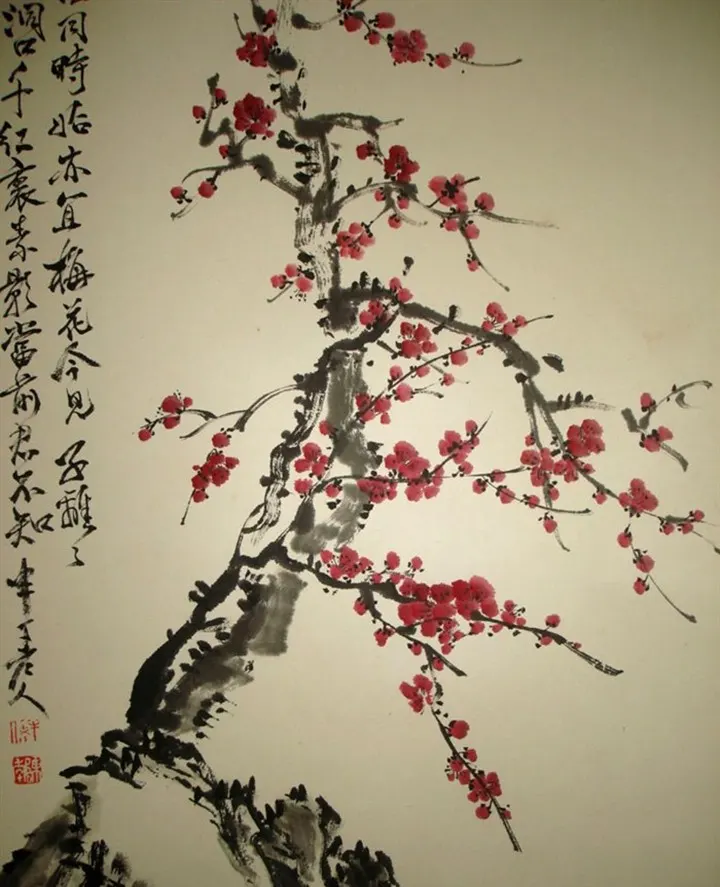 同時始亦宜梅花今見子離々
洞口千紅裏素影當前君不知 半丁老人